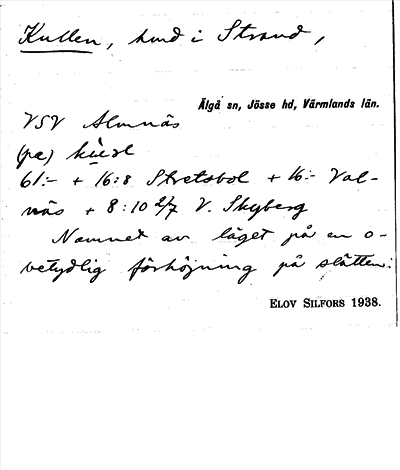 Kullen, hmd i Strand,
Älgå sn, Jösse hd, Värmlands län.
VSV Almnäs
(på)
61:- + 16:8 Stretsbol + 16:- Val-
näs + 8:10 2/7 V. Skyberg
Namnet av läget på en o-
betydlig förhöjning på slätten.
ELOV SILFORS 1938.